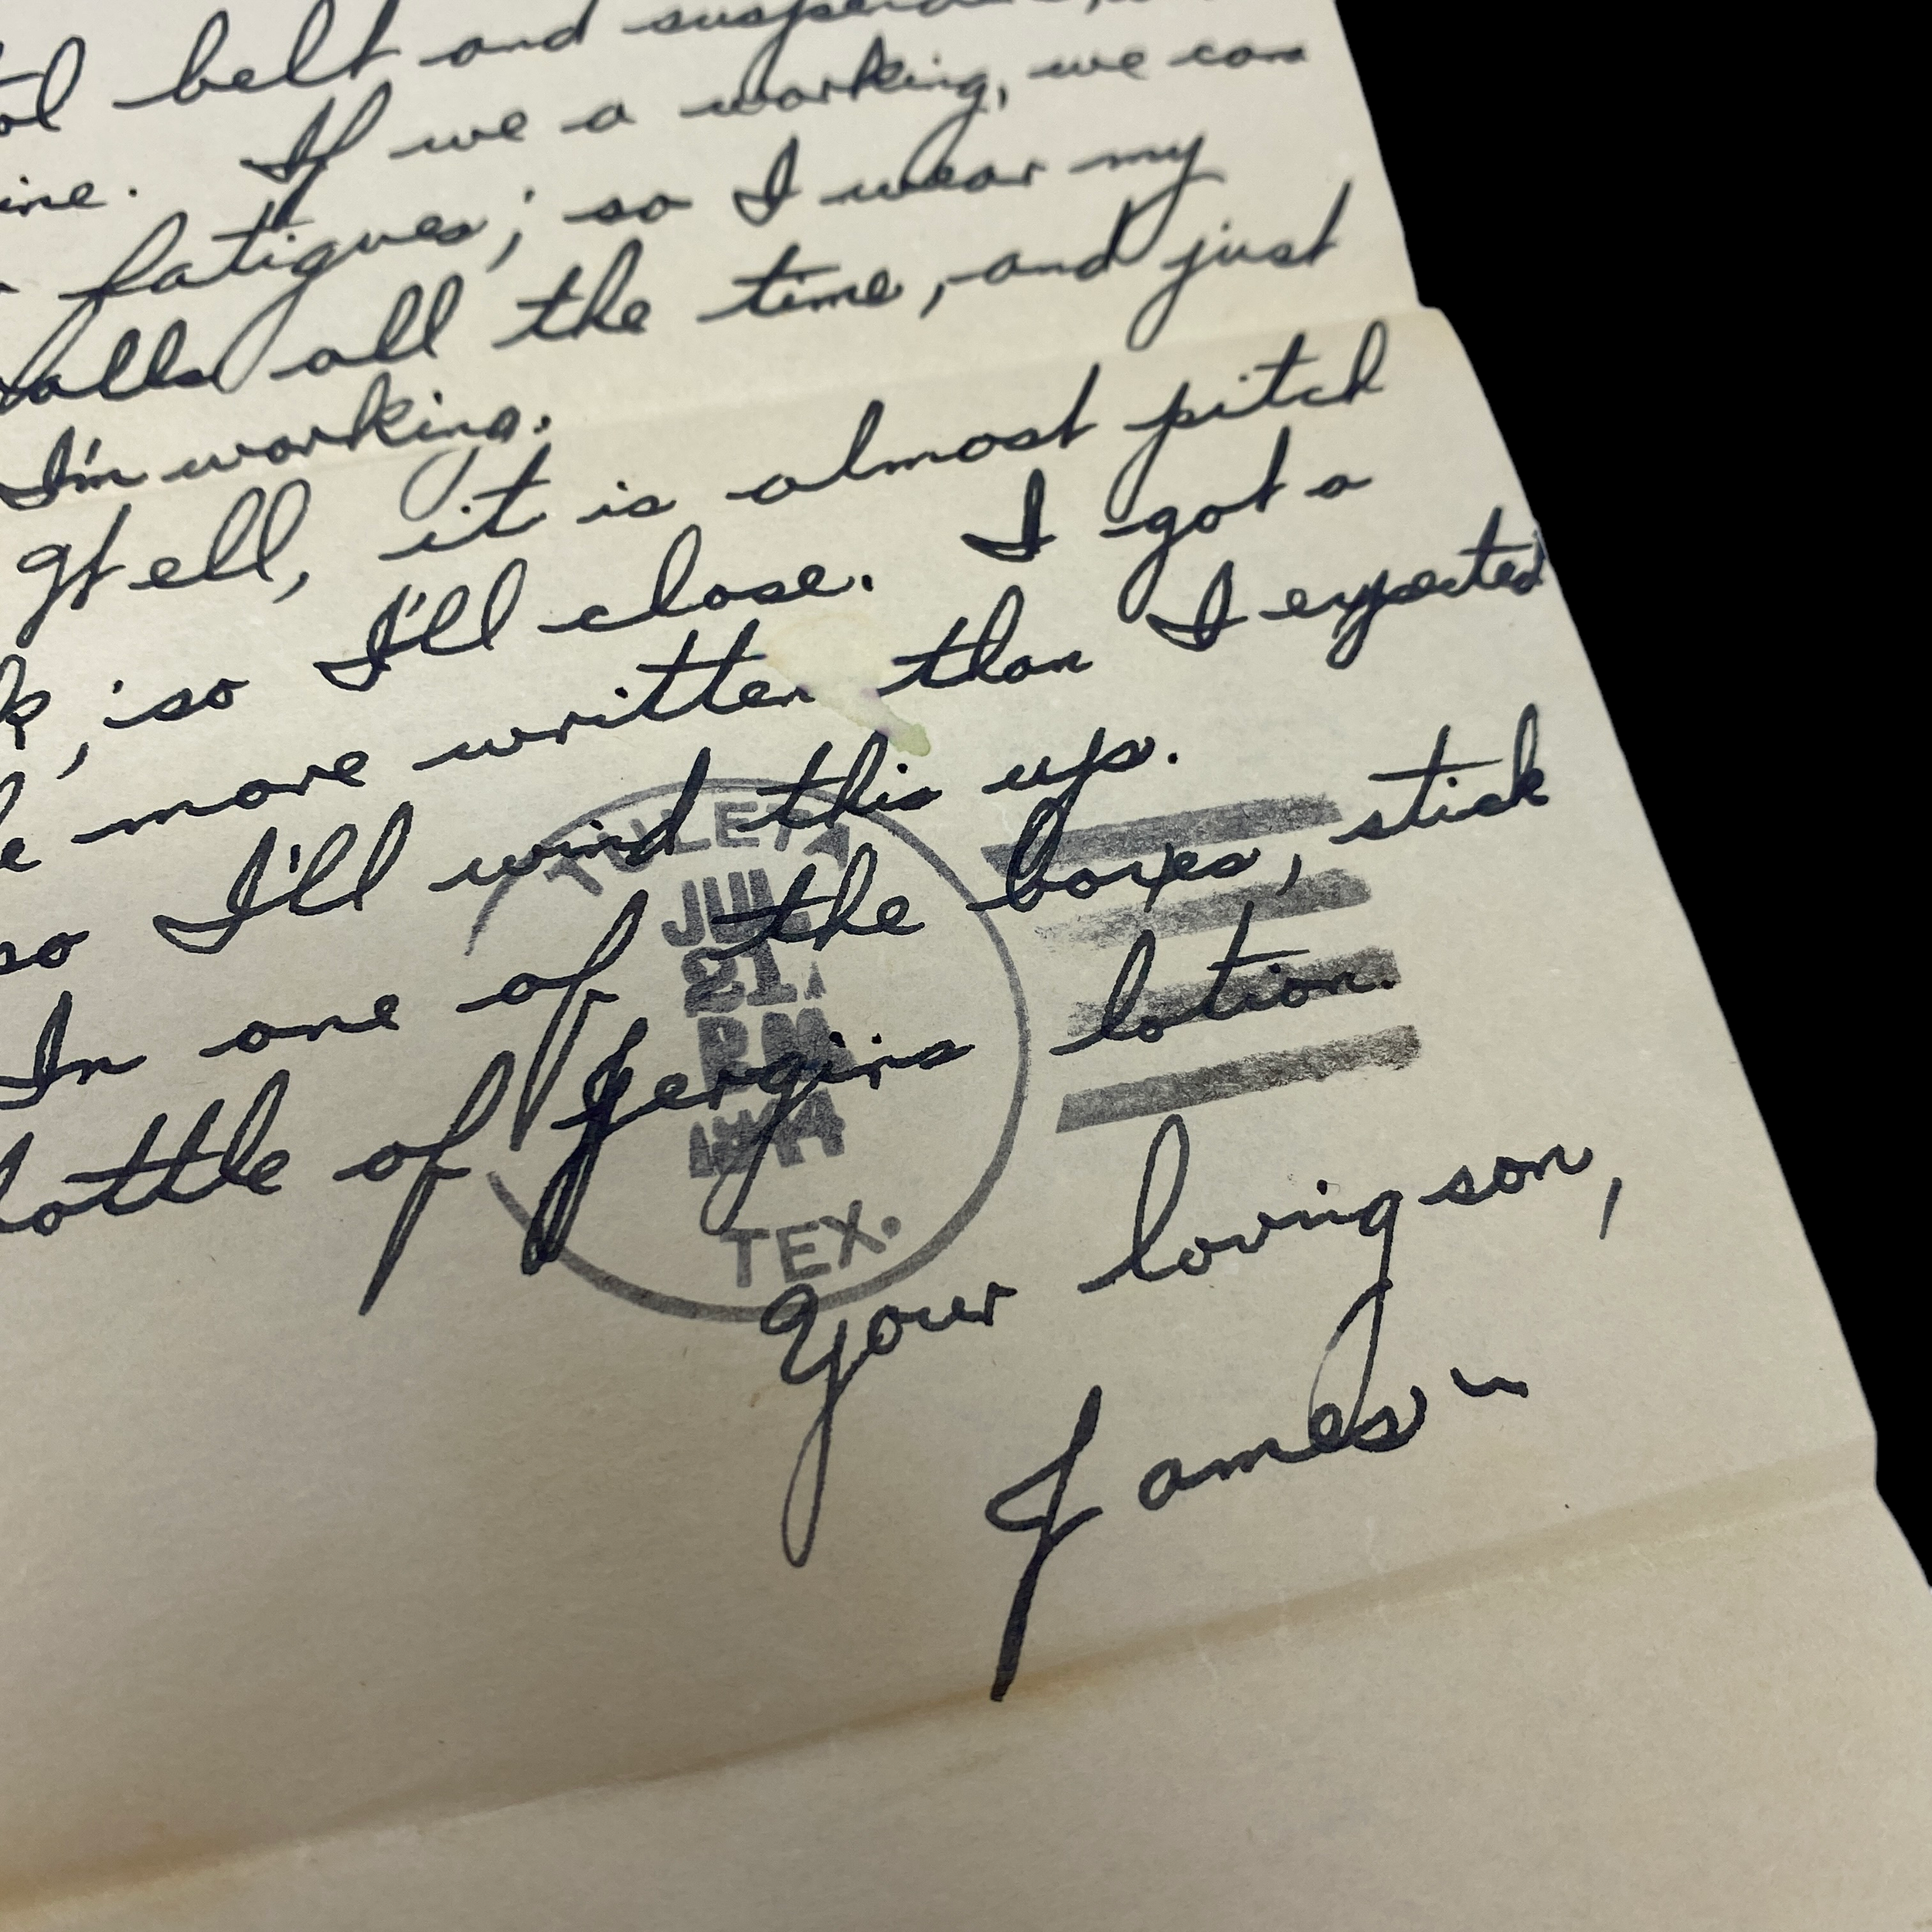 belt and
ine. If we a working, we can
fatigues; so I wear my
alls all the time, and just
I'm working.
Well, it is almost pitch
k, so I'll close. I got a
e more written than I expected
so I'll wind this up.
In one of the boxes, stick
bottle of Jergins lotion.
TULETA
JUL
21
PM
1944
TEX.
Your loving son,
James